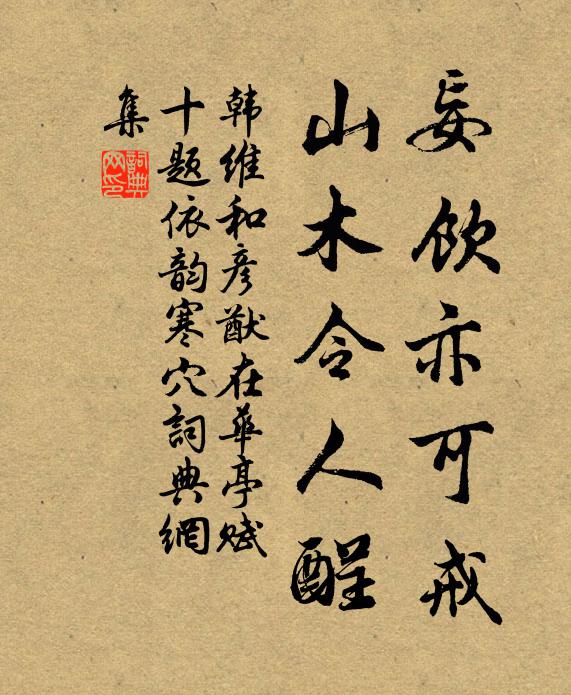 妄饮亦可戒
山木令人醒
韩维和彦猷在华亭赋
十题依韵寒穴詞典網
集
詞典
网印